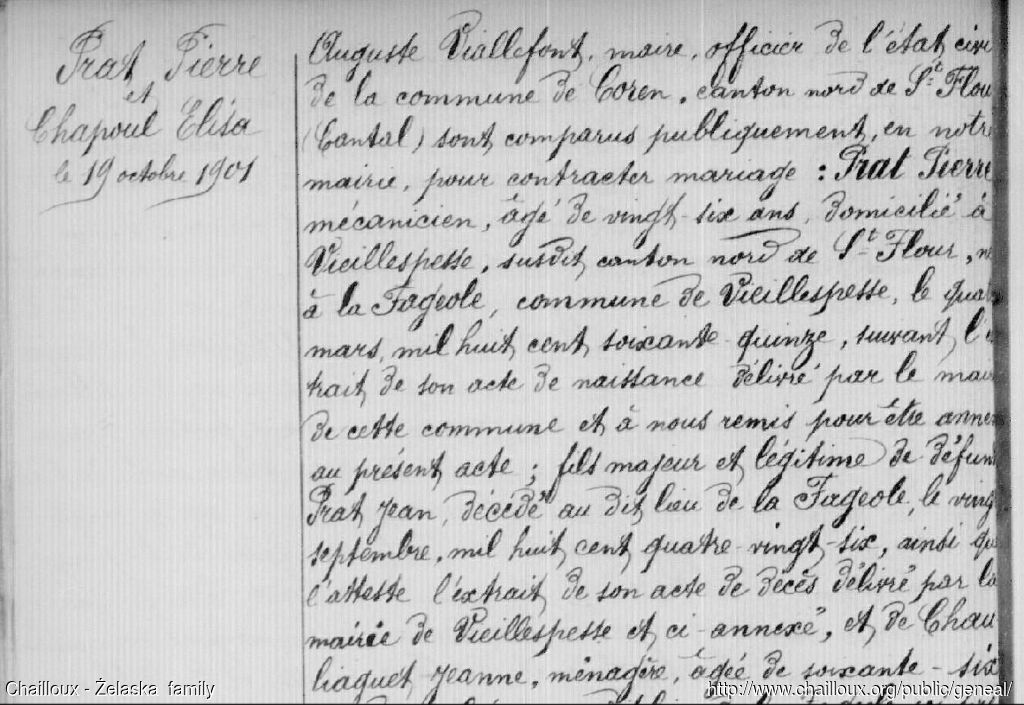 Prat Pierre
et
Chapoul Elisa
le 19 octobre 1901
Auguste Viallefont, maire, officier de l'état civi
de la commune de Coren, canton nord de St Flou
(Cantal) sont comparus publiquement, en notre
mairie, pour contracter mariage : Prat Pierre
mécanicien, âgé de vingt-six ans, domicilié à
Vieillespesse, susdit canton nord de St Flour, n
à la Fageole, commune de Vieillespesse, le quat
mars, mil huit cent soixante-quinze, suivant l'e
trait de son acte de naissance délivré par le mair
de cette commune et à nous remis pour être annex
au présent acte ; fils majeur et légitime de défun
Prat Jean, décédé au dit lieu de la Fageole, le ving
septembre, mil huit cent quatre-vingt-six, ainsi qu
l'atteste l'extrait de son acte de décès délivré par la
mairie de Vieillespesse et ci-annexé, et de Chau
liaguet Jeanne, ménagère, âgée de soixante-six
Chailloux - Żelaska family
http://www.chailloux.org/public/geneal/